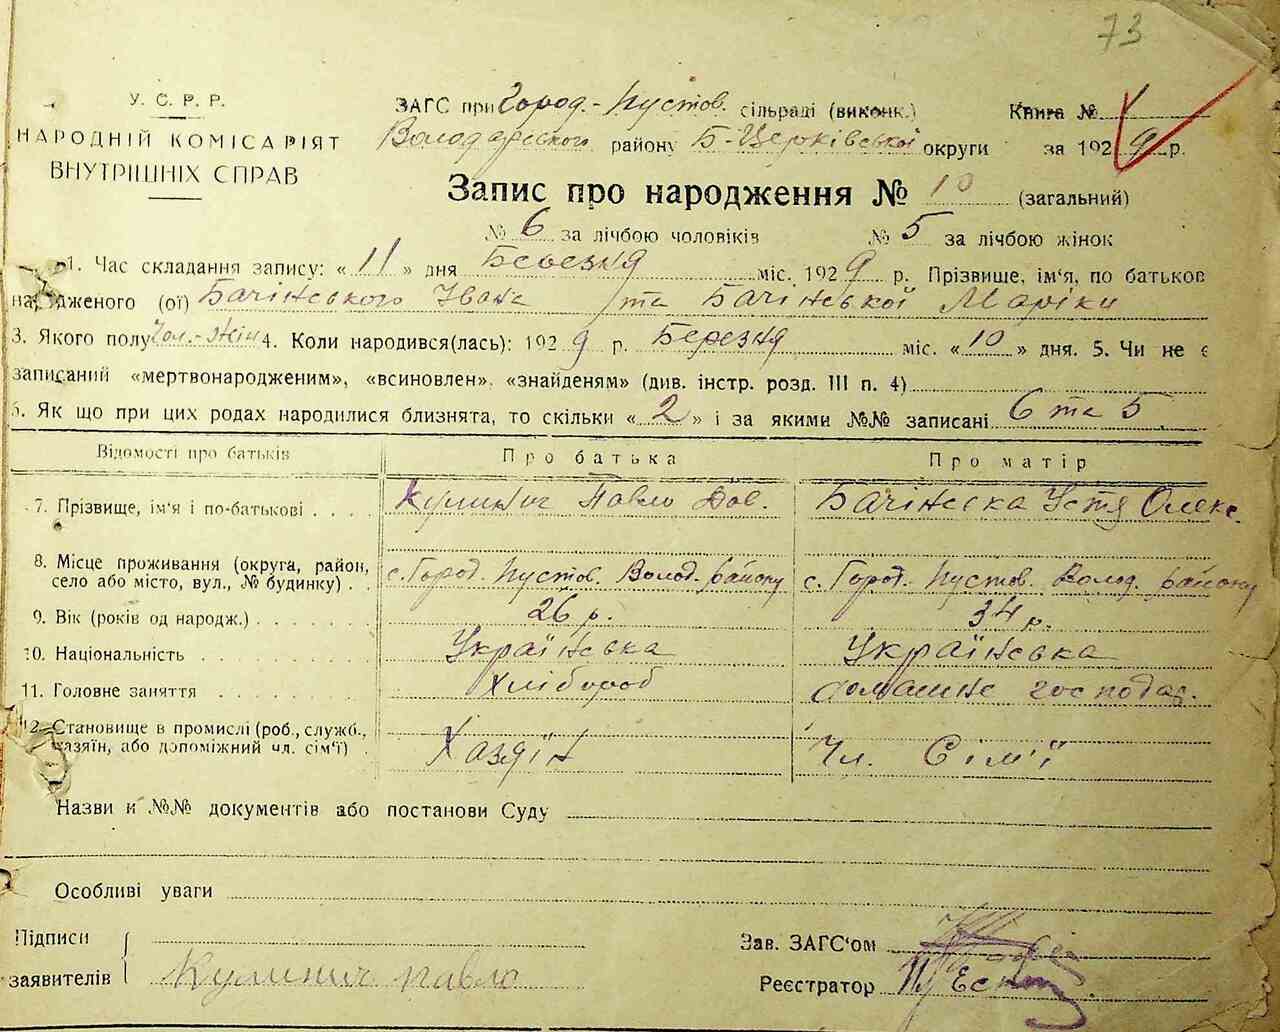 73
У. С. Р. Р.
НАРОДНІЙ КОМІСАРІЯТ
ВНУТРІШНІХ СПРАВ
ЗАГС при Город.-Пустов. сільраді (виконк.) Книга №
Володарського району Б-Церківської округи за 1929 р.
Запис про народження № 10 (загальний)
№ 6 за лічбою чоловіків № 5 за лічбою жінок
1. Час складання запису: « 11 » дня Березня міс. 1929 р. Прізвище, ім'я, по батьков
на дженого (ої) Бачінського Івана та Бачінської Маріки
3. Якого полу Чол.-Жін 4. Коли народився(лась): 1929 р. Березня міс. « 10 » дня. 5. Чи не є
записаний «мертвонародженим», «всиновлен», «знайденям» (див. інстр. розд. III п. 4)
6. Як що при цих родах народилися близнята, то скільки « 2 » і за якими №№ записані 6 та 5
Відомості про батьків Про батька Про матір
7. Прізвище, ім'я і по-батькові Кулинич Павло Дов. Бачінська Устя Олекс.
8. Місце проживання (округа, район,
село або місто, вул., № будинку) с. Город. Пустов. Волод. району с. Город. Пустов. Волод. району
9. Вік (років од народж.) 26 р. 34 р.
10. Національність Українська Українська
11. Головне заняття Хлібороб домашнє господар.
12. Становище в промислі (роб., службі,
хазяїн, або допоміжний чл. сім'ї) Хазяїн Чл. Сім'ї
Назви и №№ документів або постанови Суду
Особливі уваги
Підписи
заявителів Кулинич павло
Зав. ЗАГС'ом
Реєстратор